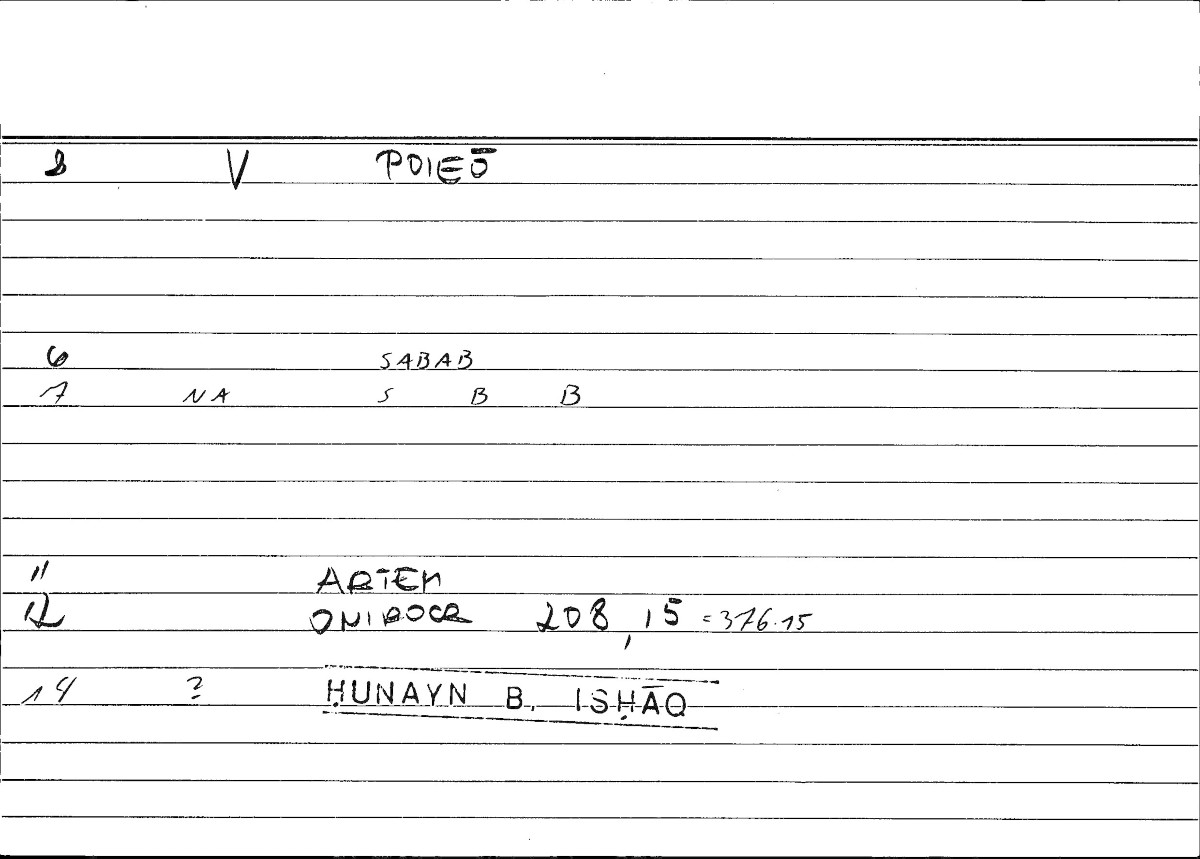 8 V POIEŌ
6 SABAB
7 NA S B B
11 ARTEM
12 ONIROCR 208,15 = 376.15
14 ? ḤUNAYN B. ISḤĀQ